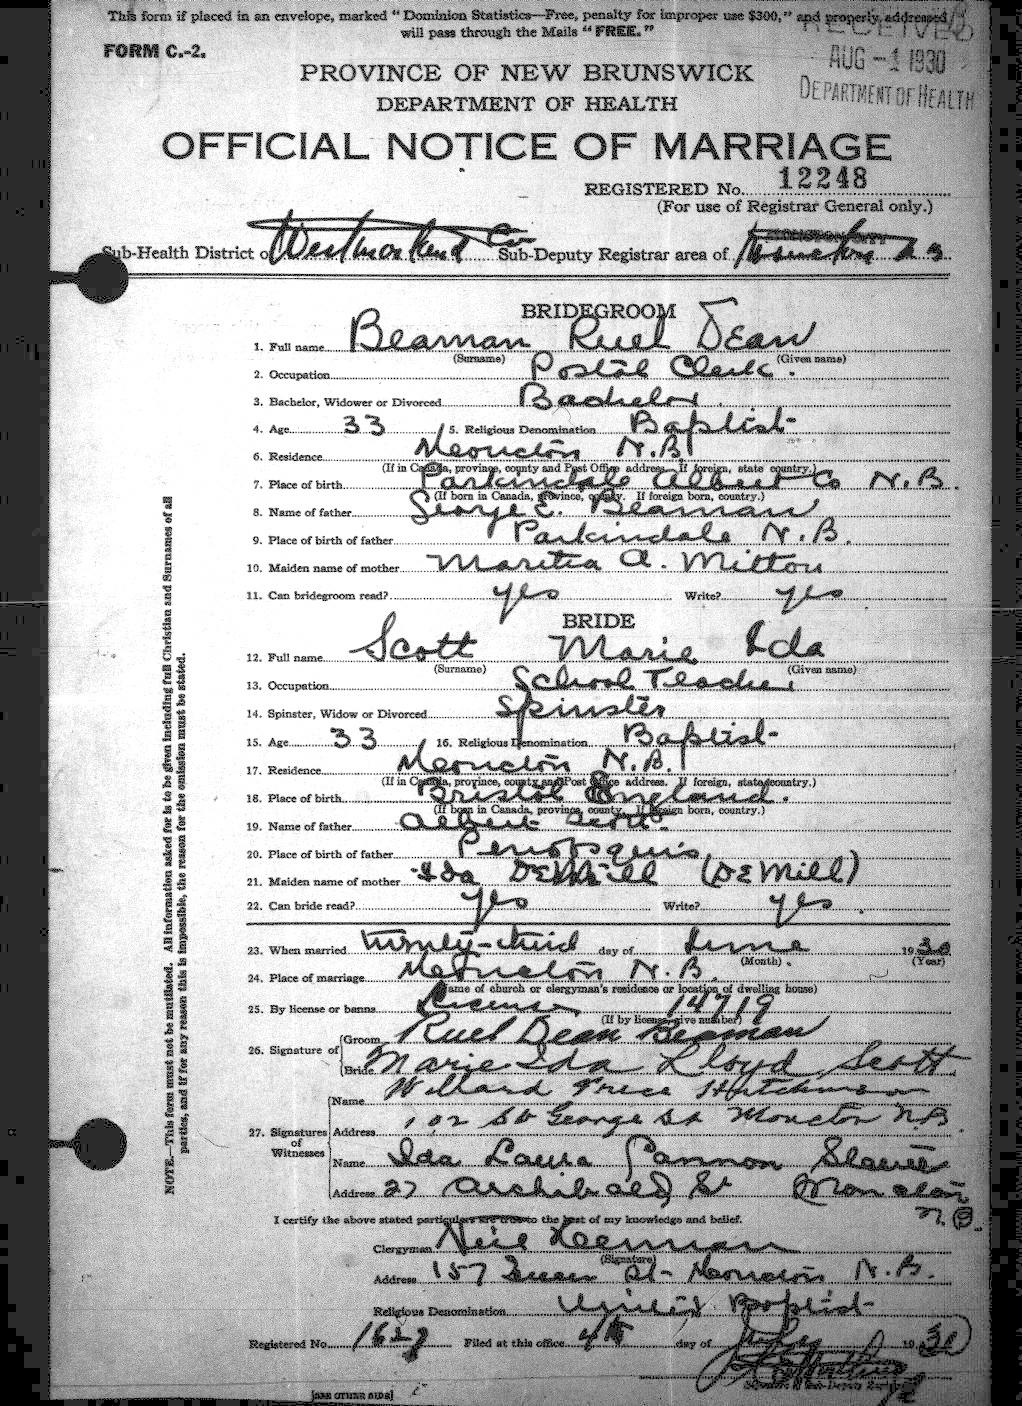 This form if placed in an envelope, marked "Dominion Statistics—Free, penalty for improper use $300," and properly addressed,
will pass through the Mails "FREE."
FORM C.-2.
RECEIVED
AUG -1 1930
DEPARTMENT OF HEALTH
PROVINCE OF NEW BRUNSWICK
DEPARTMENT OF HEALTH
OFFICIAL NOTICE OF MARRIAGE
REGISTERED No. 12248
(For use of Registrar General only.)
Sub-Health District of Westmorland Co Sub-Deputy Registrar area of
BRIDEGROOM
1. Full name Beaman Ruel Dean
(Surname) (Given name)
2. Occupation Postal Clerk.
3. Bachelor, Widower or Divorced Bachelor.
4. Age 33 5. Religious Denomination Baptist
6. Residence Moncton N.B.
(If in Canada, province, county and Post Office address. If foreign, state country.)
7. Place of birth Parkindale Albert Co N.B.
(If born in Canada, province, county. If foreign born, country.)
8. Name of father George E. Beaman
9. Place of birth of father Parkindale N.B.
10. Maiden name of mother Maritia A. Mitton
11. Can bridegroom read? yes Write? yes
BRIDE
12. Full name Scott Marie Ida
(Surname) (Given name)
13. Occupation School Teacher
14. Spinster, Widow or Divorced Spinster
15. Age 33 16. Religious Denomination Baptist
17. Residence Moncton N.B.
(If in Canada, province, county and Post Office address. If foreign, state country.)
18. Place of birth Bristol England.
(If born in Canada, province, county. If foreign born, country.)
19. Name of father Albert Scott.
20. Place of birth of father Penobsquis
21. Maiden name of mother Ida DeMill (DEMill)
22. Can bride read? yes Write? yes.
23. When married twenty-third day of June 1930
(Month) (Year)
24. Place of marriage Moncton N.B.
(Name of church or clergyman's residence or location of dwelling house)
25. By license or banns License 14719
(If by license, give number)
26. Signature of Groom Ruel Dean Beaman
Bride Marie Ida Lloyd Scott.
27. Signatures of Witnesses
Name Willard Price Hutchinson
Address 102 St George St Moncton N.B.
Name Ida Laura Steeves
Address 27 Archibald St Moncton
N.B.
I certify the above stated particulars are true to the best of my knowledge and belief.
Clergyman Neil Herman
(Signature)
Address 157 Queen St- Moncton N.B.
Religious Denomination United Baptist
Registered No. 1627 Filed at this office 4th day of July 1930
[SEE OTHER SIDE]
NOTE.—This form must not be mutilated. All information asked for is to be given including full Christian and Surnames of all
parties, and if for any reason this is impossible, the reason for the omission must be stated.